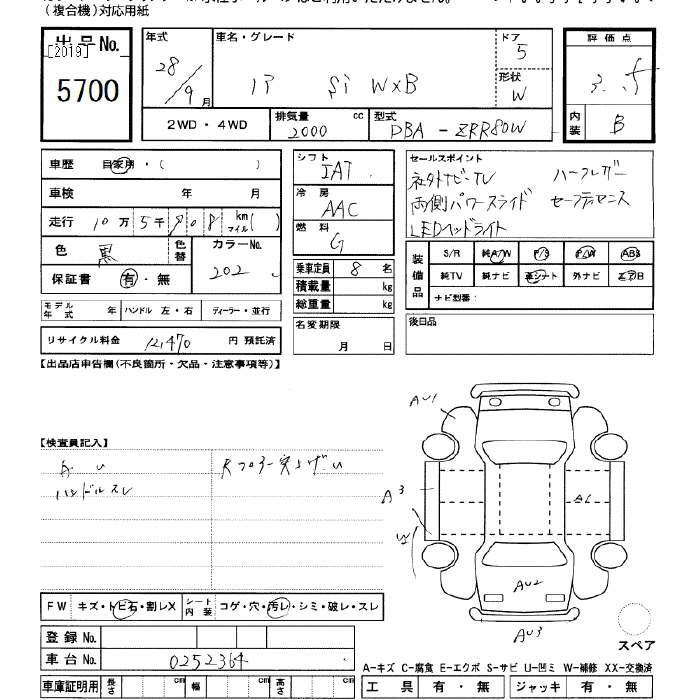 (複合機)対応用紙
出品No.
[2019]
5700
年式
28/9月
車名・グレード
Si W×B
ドア
5
形状
W
評価点
3.5
内装
B
2WD・4WD
排気量 cc
2000
型式
DBA-ZRR80W
車歴 自家用・( )
車検 年 月
走行 10万5千908 km マイル( )
色 黒 色替
カラーNo.
202
保証書 有・無
シフト
IAT
冷房
AAC
燃料
G
乗車定員 8名
積載量 kg
総重量 kg
名変期限
月 日
セールスポイント
社外ナビ・TV ハーフレザー
両側パワースライド セーフティセンス
LEDヘッドライト
装備品
S/R 純A/W P/S P/W ABS
純TV 純ナビ 革シート 外ナビ エアB
ナビ型番:
後日品
モデル年式 年 ハンドル 左・右 ディーラー・並行
リサイクル料金 12,470 円 預託済
【出品店申告欄(不良箇所・欠品・注意事項等)】
【検査員記入】
ハンドルスレ
FW キズ・トビ石・割レX
シート内装 コゲ・穴・汚レ・シミ・破レ・スレ
登録No.
車台No. 0252364
車庫証明用 長さ cm 幅 cm 高さ cm
AU1
A3
W2
A1
AU2
AU3
スペア
A-キズ C-腐食 E-エクボ S-サビ U-凹ミ W-補修 XX-交換済
工具 有・無 ジャッキ 有・無